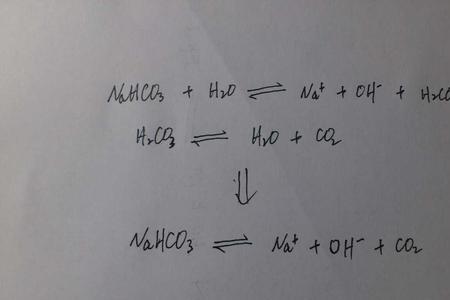 NaHCO3 + H2O ⇌ Na+ + OH- + H2CO
H2CO3 ⇌ H2O + CO2
⇓
NaHCO3 ⇌ Na+ + OH- + CO2